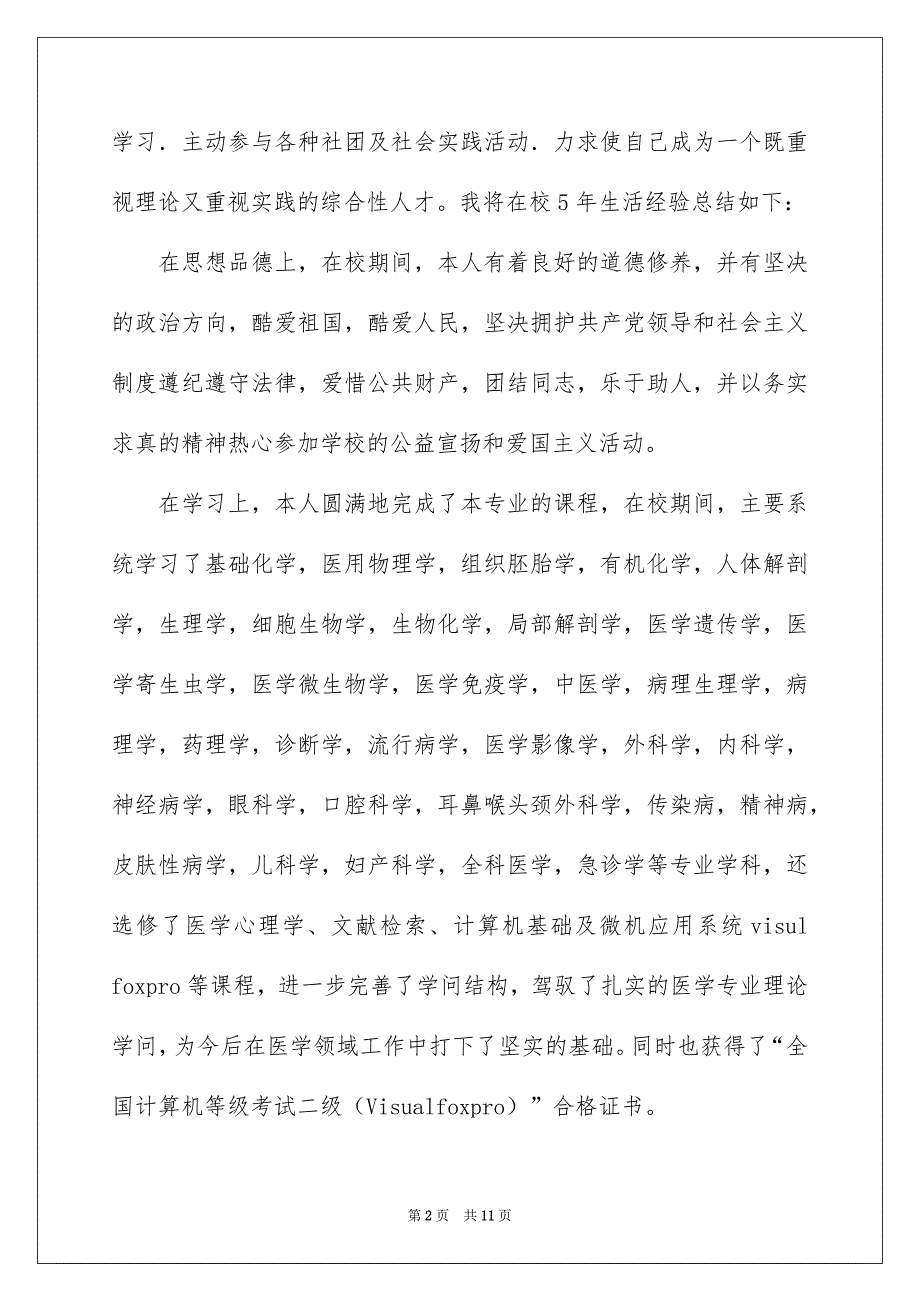 学习．主动参与各种社团及社会实践活动．力求使自己成为一个既重
视理论又重视实践的综合性人才。我将在校 5 年生活经验总结如下：
在思想品德上，在校期间，本人有着良好的道德修养，并有坚决
的政治方向，酷爱祖国，酷爱人民，坚决拥护共产党领导和社会主义
制度遵纪遵守法律，爱惜公共财产，团结同志，乐于助人，并以务实
求真的精神热心参加学校的公益宣扬和爱国主义活动。
在学习上，本人圆满地完成了本专业的课程，在校期间，主要系
统学习了基础化学，医用物理学，组织胚胎学，有机化学，人体解剖
学，生理学，细胞生物学，生物化学，局部解剖学，医学遗传学，医
学寄生虫学，医学微生物学，医学免疫学，中医学，病理生理学，病
理学，药理学，诊断学，流行病学，医学影像学，外科学，内科学，
神经病学，眼科学，口腔科学，耳鼻喉头颈外科学，传染病，精神病，
皮肤性病学，儿科学，妇产科学，全科医学，急诊学等专业学科，还
选修了医学心理学、文献检索、计算机基础及微机应用系统 visul
foxpro 等课程，进一步完善了学问结构，驾驭了扎实的医学专业理论
学问，为今后在医学领域工作中打下了坚实的基础。同时也获得了“全
国计算机等级考试二级（Visualfoxpro）”合格证书。
第 2 页 共 11 页